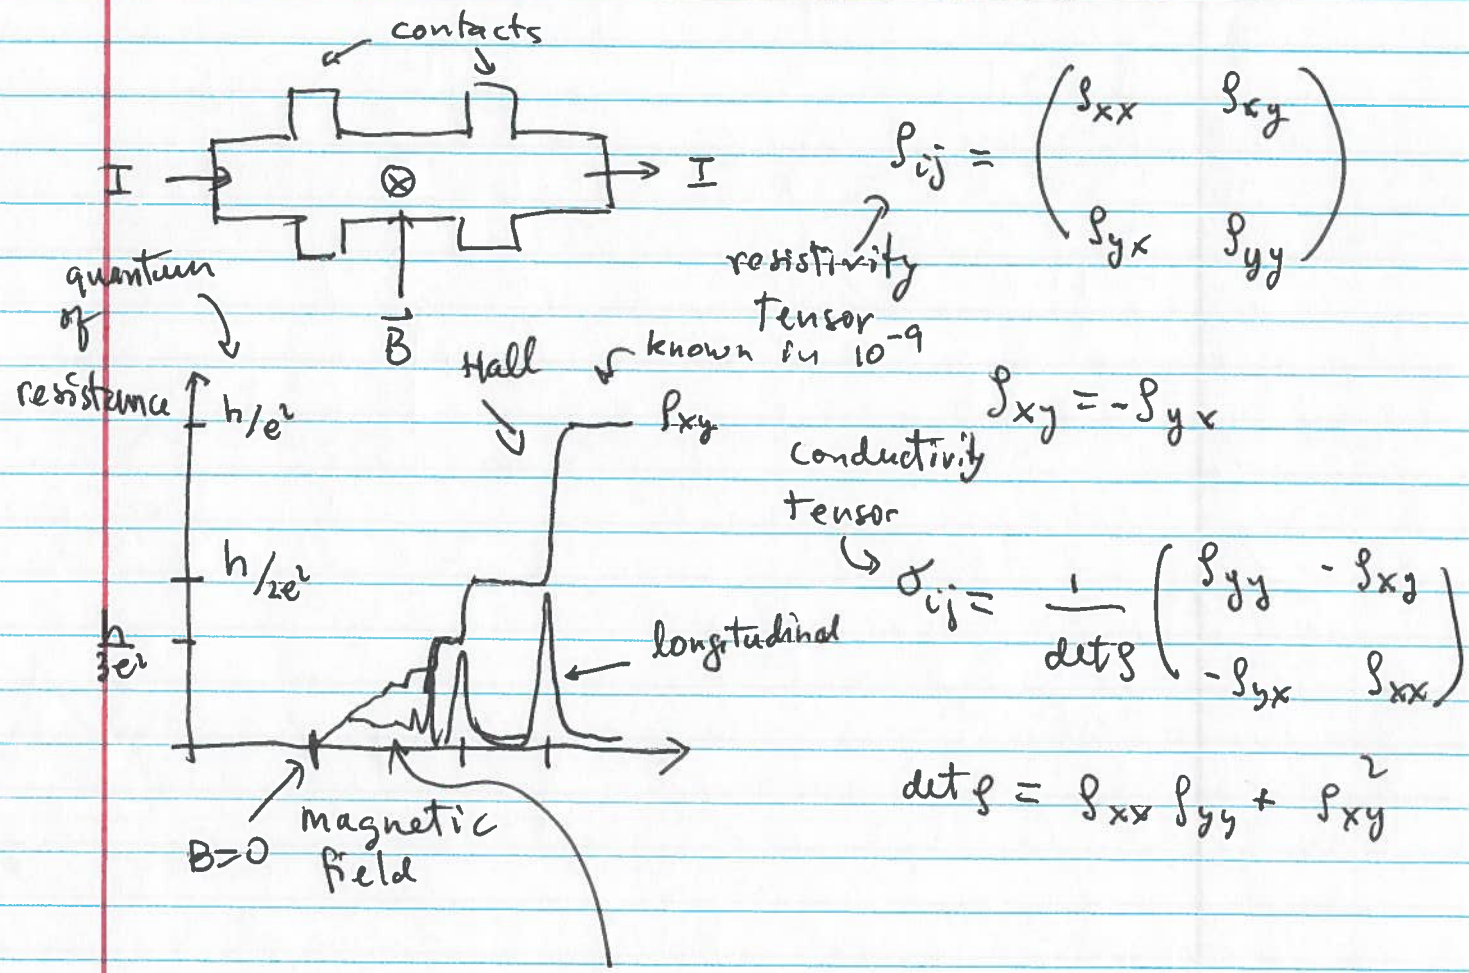 contacts
I
I
B⃗
quantum
of
resistance
h/e²
h/2e²
h/3e²
Hall
known in 10⁻⁹
ρxy
longitudinal
B=0
magnetic
field
ρij = (ρxx ρxy
ρyx ρyy)
resistivity
tensor
ρxy = -ρyx
conductivity
tensor
σij = 1/detρ (ρyy -ρxy
-ρyx ρxx)
detρ = ρxx ρyy + ρxy²